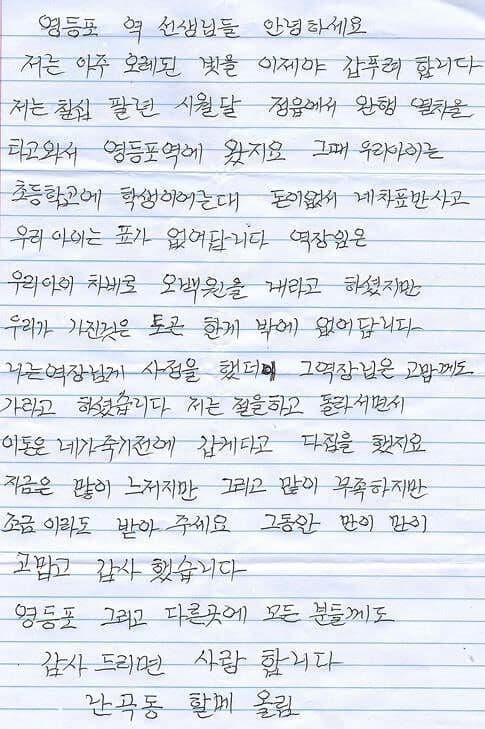 영등포 역 선생님들 안녕하세요
저는 아주 오레된 빚을 이제야 갑푸려 합니다
저는 칠십 팔년 시월달 정읍에서 완행 열차을
타고와서 영등포역에 왔지요 그때 우리아이는
초등학고에 학생이어는대 돈이없서 네차표만사고
우리 아이는 표가 없어답니다 역장임은
우리아이 차비로 오백원을 내라고 하셨지만
우리가 가진것은 토큰 한게 밖에 없어답니다
나는역장님게 사정을 했더니 그역장님은 고맙께도
가라고 하셨습니다 저는 절을하고 돌라서면서
이돈은 네가죽기전에 갑게다고 다짐을 했지요
지금은 많이 느저지만 그리고 많이 부족하지만
조금 이라도 받아 주세요 그동안 만이 만이
고맙고 감사 했습니다
영등포 그리고 다른곳에 모든 분들께도
감사 드리면 사람 합니다
난곡동 할메 올림